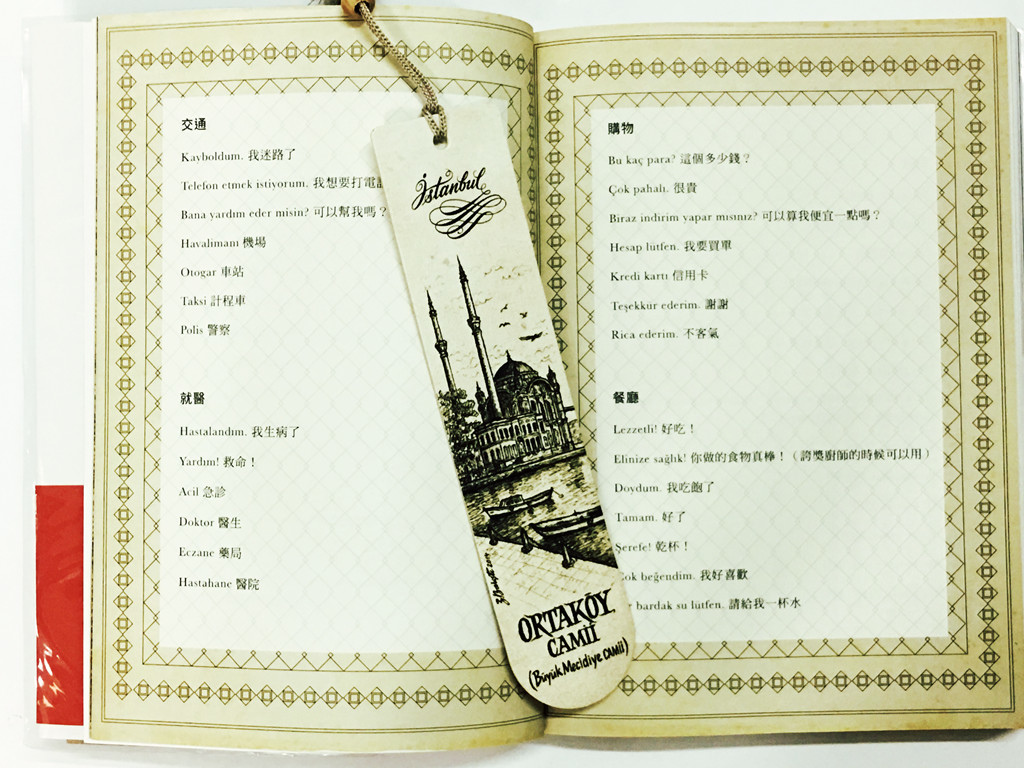 交通
Kayboldum. 我迷路了
Telefon etmek istiyorum. 我想要打電
Bana yardım eder misin? 可以幫我嗎？
Havalimanı 機場
Otogar 車站
Taksi 計程車
Polis 警察
就醫
Hastalandım. 我生病了
Yardım! 救命！
Acil 急診
Doktor 醫生
Eczane 藥局
Hastahane 醫院
İstanbul
ORTAKÖY
CAMİİ
(Büyük Mecidiye CAMİİ)
購物
Bu kaç para? 這個多少錢？
Çok pahalı. 很貴
Biraz indirim yapar mısınız? 可以算我便宜一點嗎？
Hesap lütfen. 我要買單
Kredi kartı 信用卡
Teşekkür ederim. 謝謝
Rica ederim. 不客氣
餐廳
Lezzetli! 好吃！
Elinize sağlık! 你做的食物真棒！（誇獎廚師的時候可以用）
Doydum. 我吃飽了
Tamam. 好了
Şerefe! 乾杯！
Çok beğendim. 我好喜歡
bardak su lütfen. 請給我一杯水